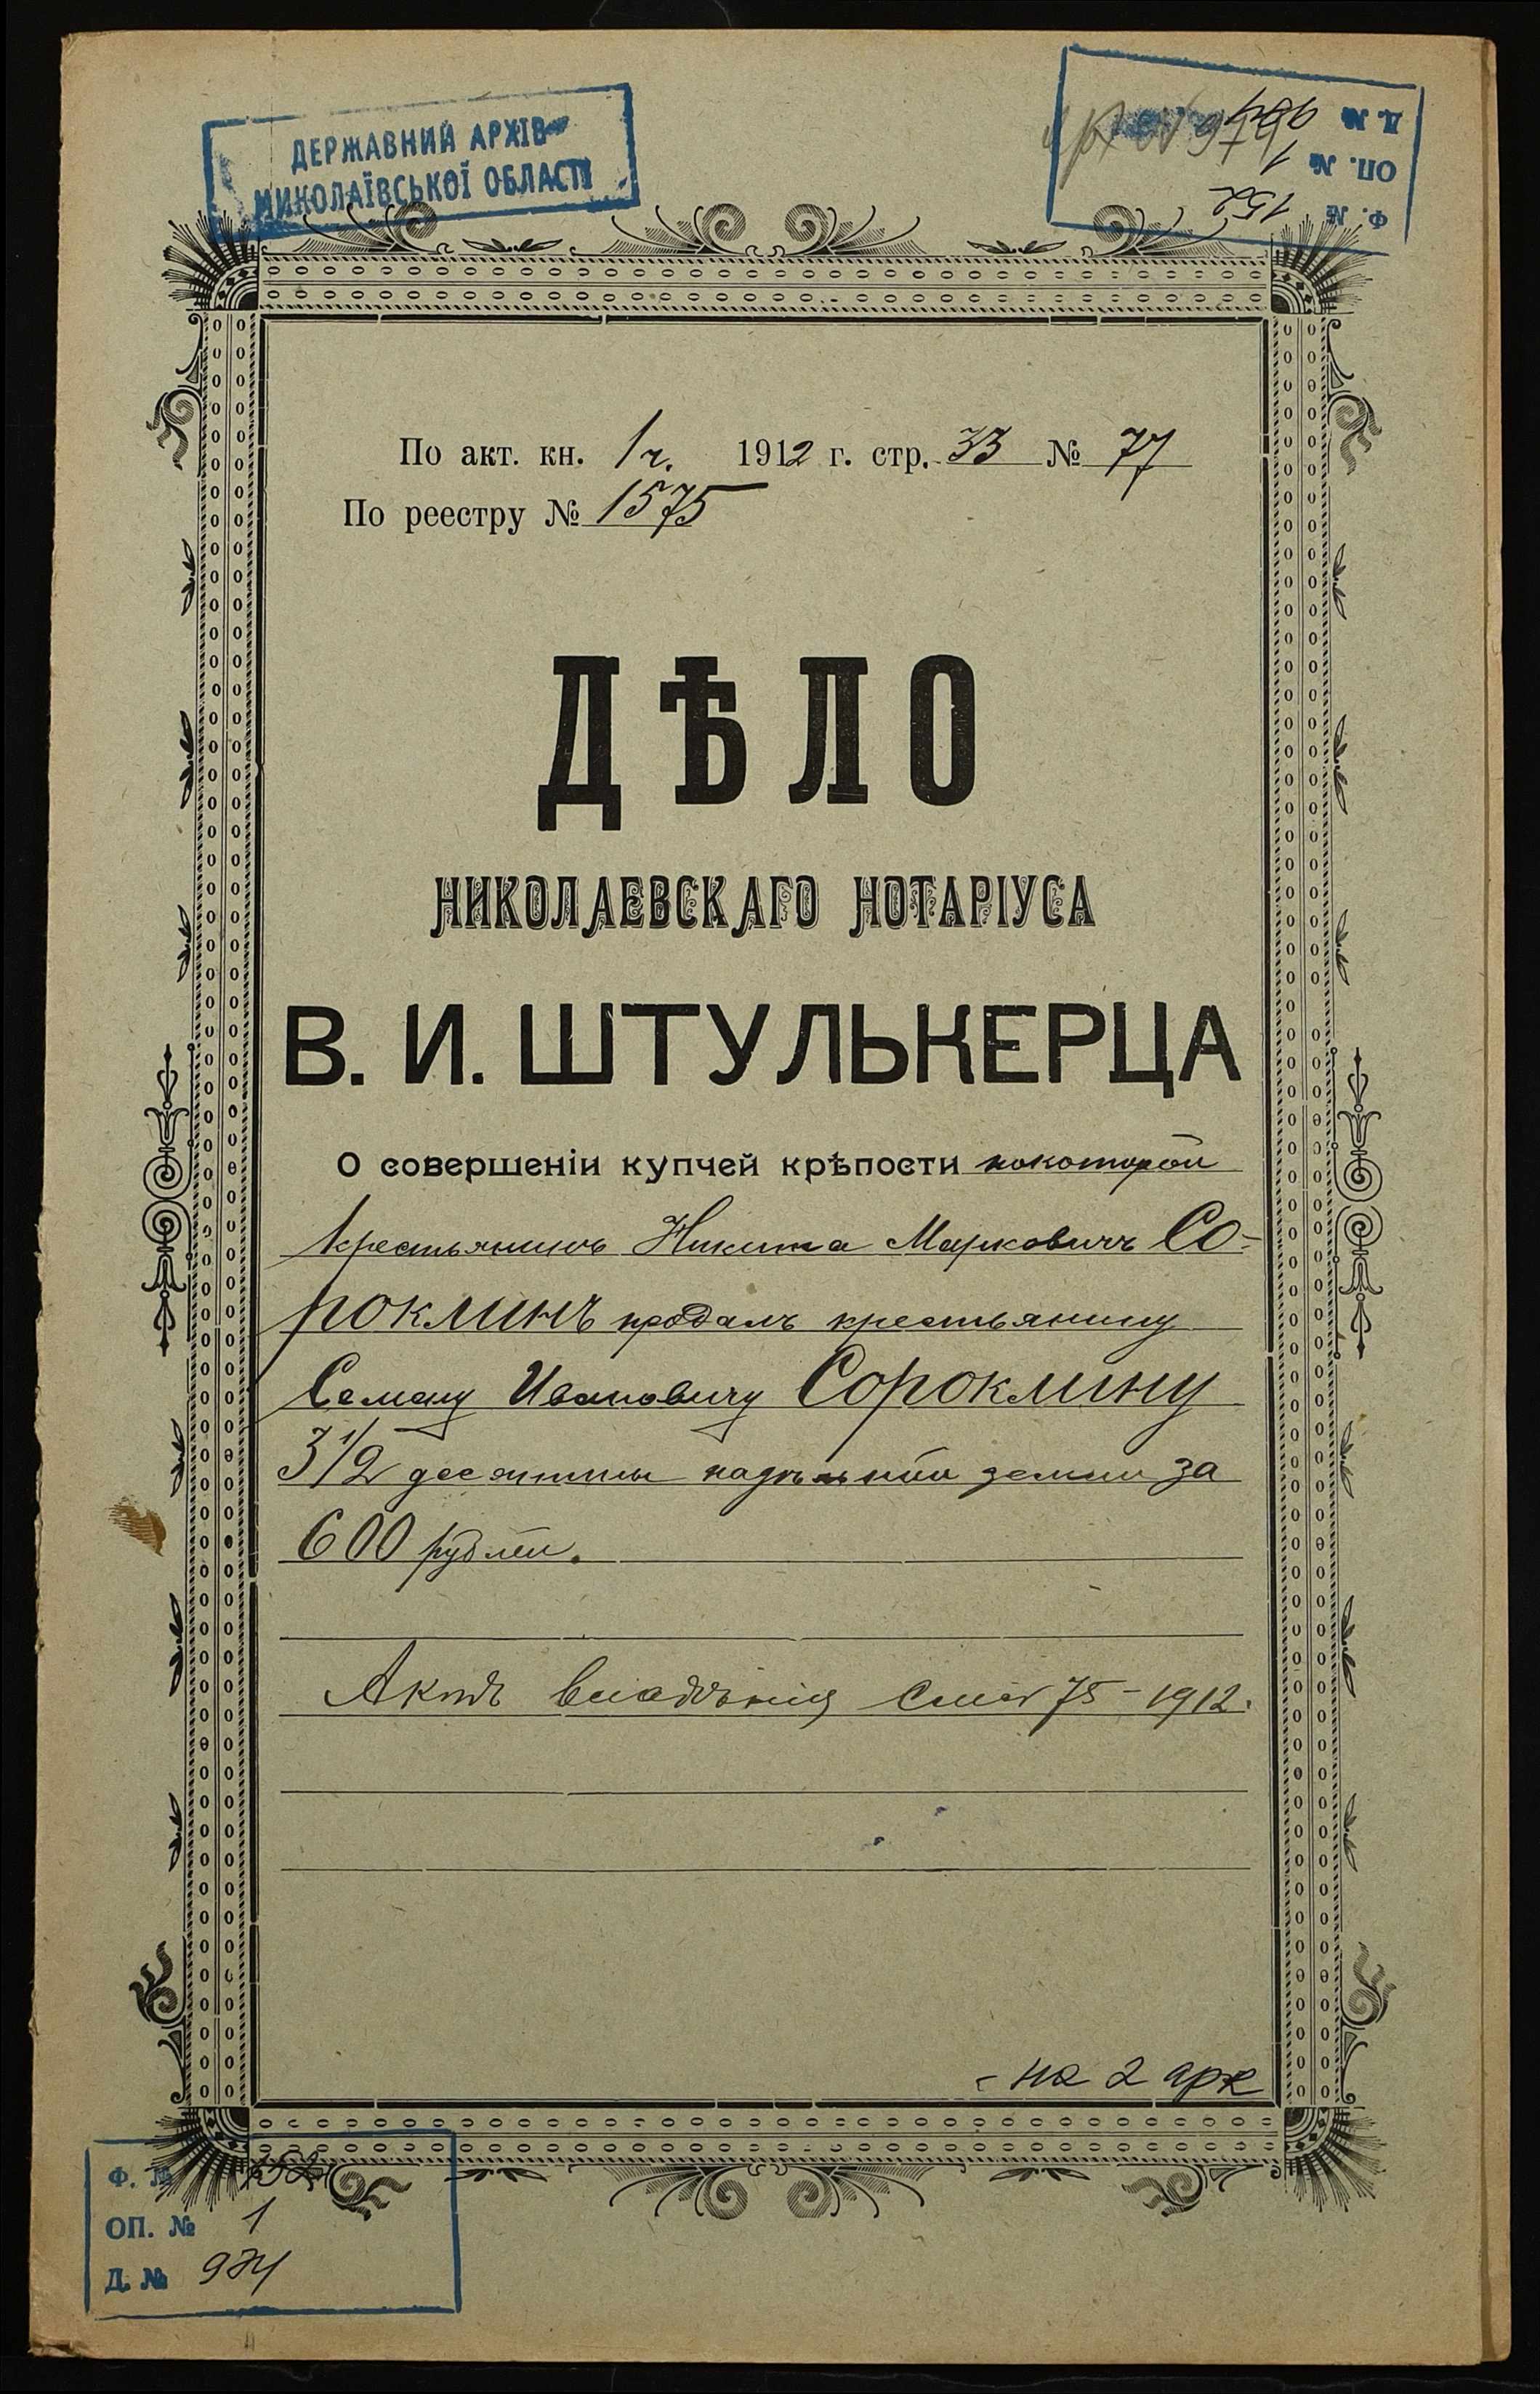 ДЕРЖАВНИЙ АРХІВ
МИКОЛАЇВСЬКОЇ ОБЛАСТІ
Ф. № 152
ОП. № 1
Д. №
По акт. кн. 1 ч. 1912 г. стр. 33 № 77
По реестру № 1575
ДѢЛО
НИКОЛАЕВСКАГО НОТАРІУСА
В. И. ШТУЛЬКЕРЦА
О совершеніи купчей крѣпости покоторой
крестьянинъ Никита Марковичъ Со-
роклинъ продалъ крестьянину
Семену Ивановичу Сороклину
3 1/2 десятины надѣльной земли за
600 рублей.
Актъ владѣнія 75 - 1912.
- на 2 арк
Ф. № 152
ОП. № 1
Д. № 974